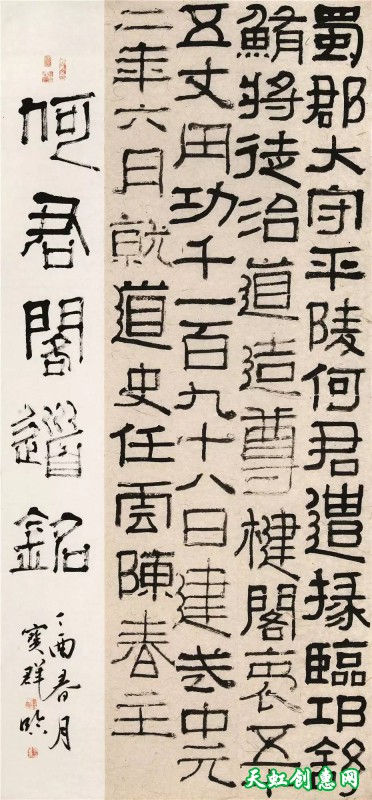 蜀郡大守平陵何君遣掾臨邛舒
鮪將徒治道造尊楗閣袤五十
五丈用功千一百九十八日建武中元
二年六月就道史任雲陳春主
何君閣道銘
丁酉春月
寶群臨
天虹创惠网